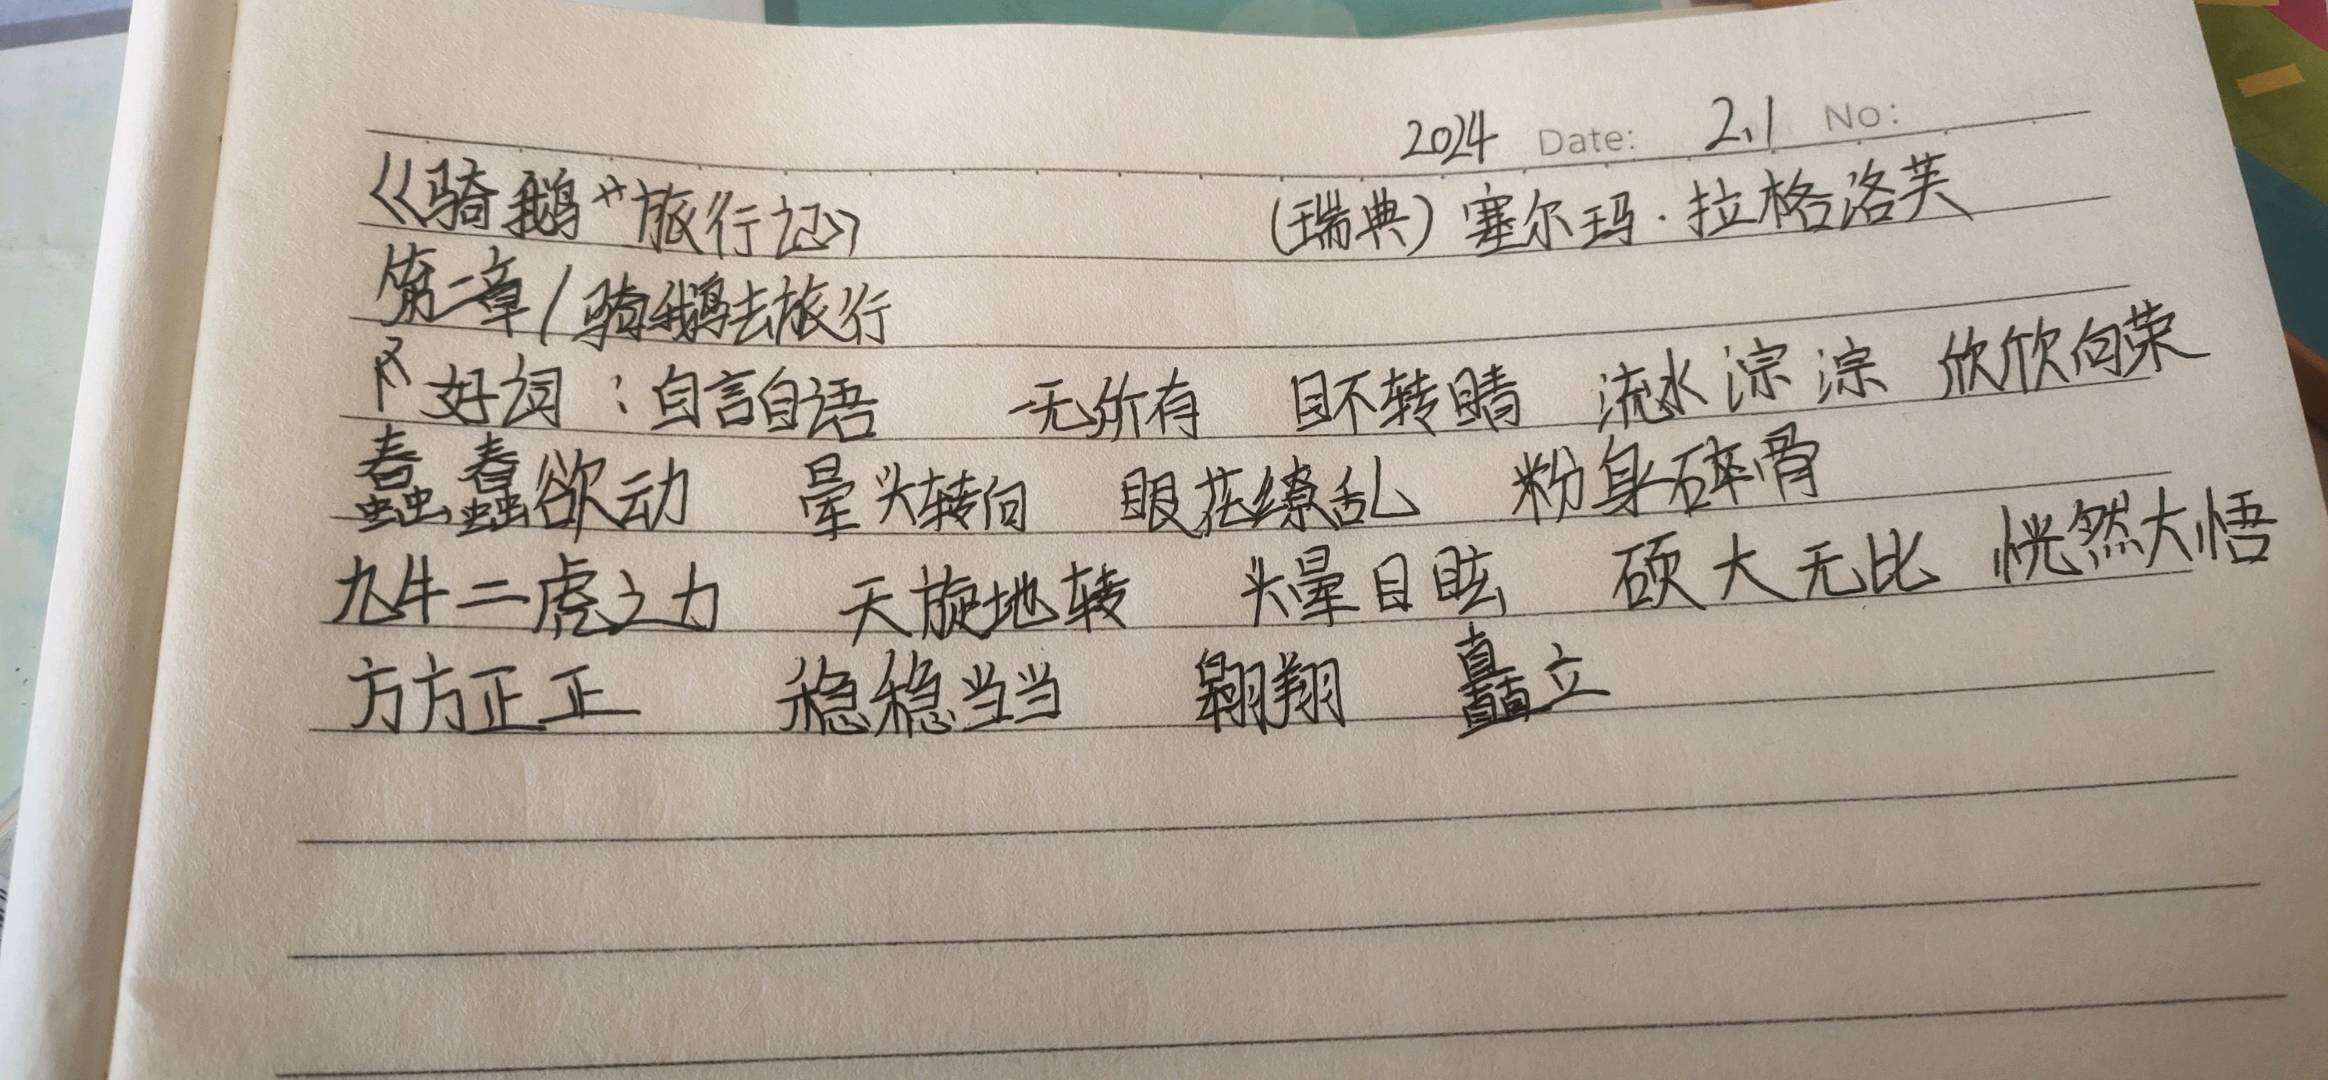 2024 Date: 2.1 No:
《骑鹅旅行记》 (瑞典) 塞尔玛·拉格洛芙
第二章/骑鹅去旅行
好词:自言自语 一无所有 目不转睛 流水淙淙 欣欣向荣
蠢蠢欲动 晕头转向 眼花缭乱 粉身碎骨
九牛二虎之力 天旋地转 头晕目眩 硕大无比 恍然大悟
方方正正 稳稳当当 翱翔 矗立